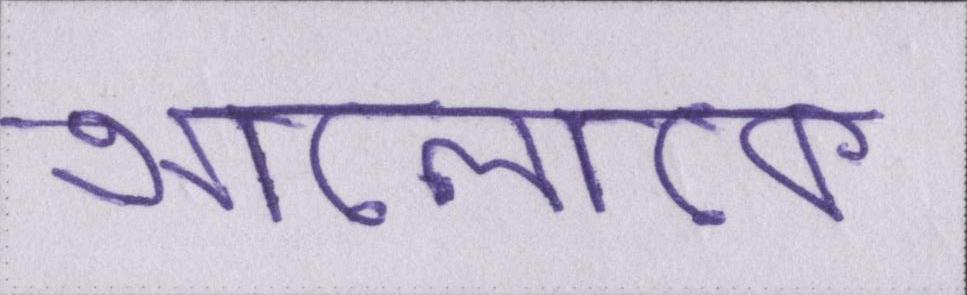 আলোকে